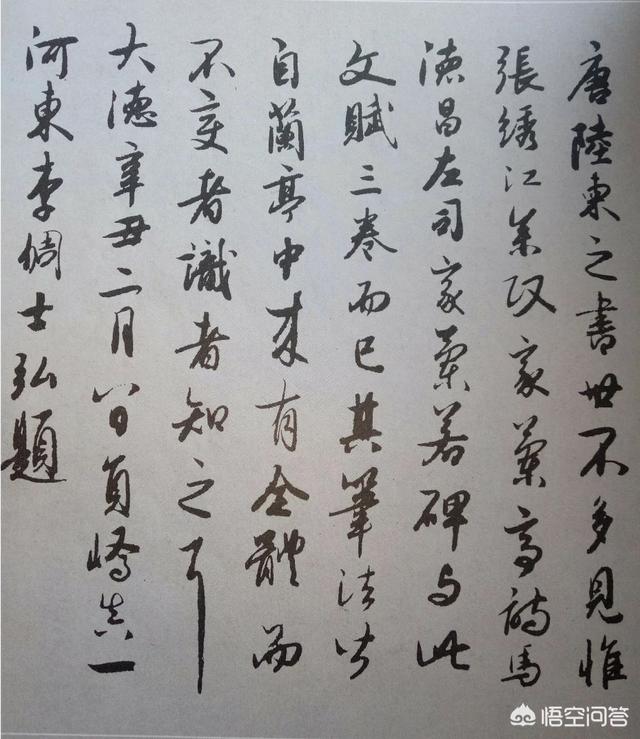 唐陸柬之書世不多見惟
張綉江參政家蘭亭詩馬
德昌左司家蘭若碑与此
文賦三卷而已其筆法皆
自蘭亭中来有全體而
不变者識者知之耳
大德辛丑二月八日員嶠真一
河東李倜士弘題
悟空问答